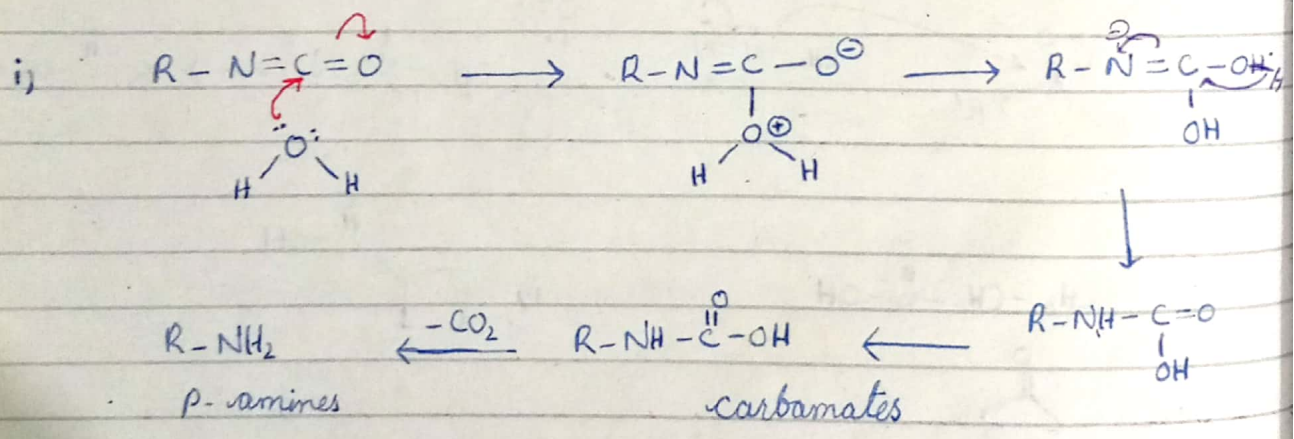 i) R – N = C = O ⟶ R – N = C – O⊖ ⟶ R – N = C – OH
O H H O⊕ H H OH
R – NH₂ ⟵ –CO₂ R – NH – C(=O) – OH ⟵ R – NH – C = O
OH
p- amines carbamates